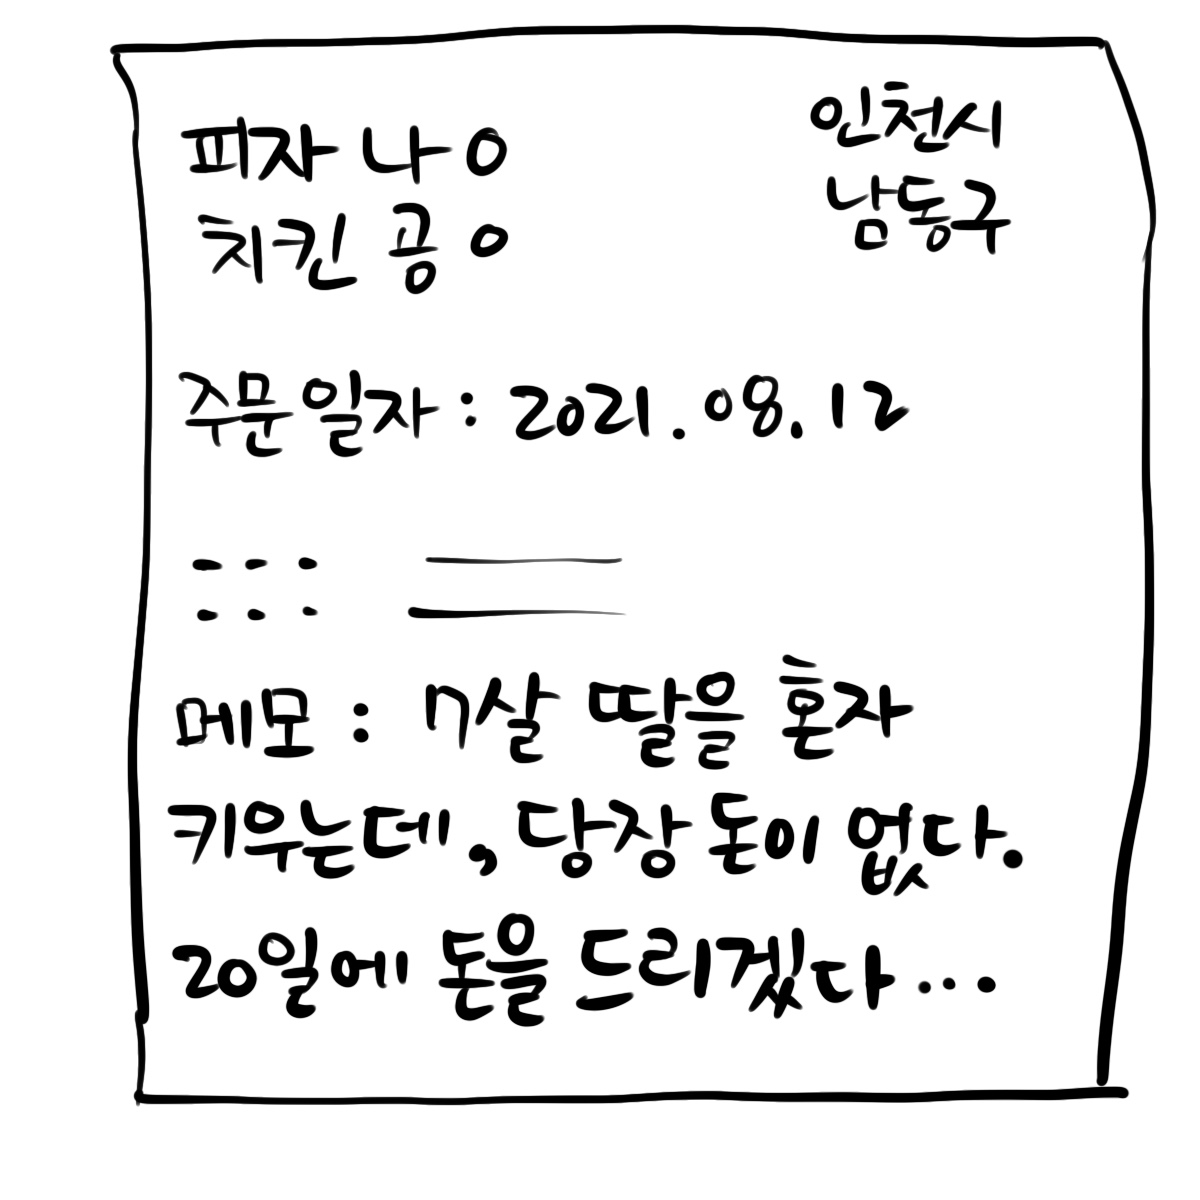 피자 나0
치킨 공0
인천시
남동구
주문일자 : 2021. 08. 12
메모 : 7살 딸을 혼자
키우는데, 당장 돈이 없다.
20일에 돈을 드리겠다...